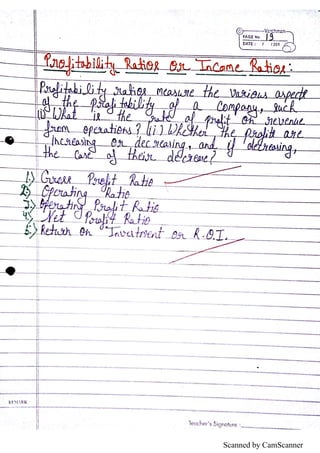 PAGE No. 19
DATE: / /200
Profitability Ratios Or Income Ratios:
Profitability ratios measure the various aspects
of the profitability of a company, such
(i) What is the rate of profit on revenue
from operations? (ii) Whether the profits are
increasing or decreasing, and if decreasing,
the case of their decrease?
1.) Gross Profit Ratio
2) Operating Ratio
3.) Operating Profit Ratio
4) Net Profit Ratio
5.) Return on Investment or R.O.I.
Teacher's Signature -
Scanned by CamScanner